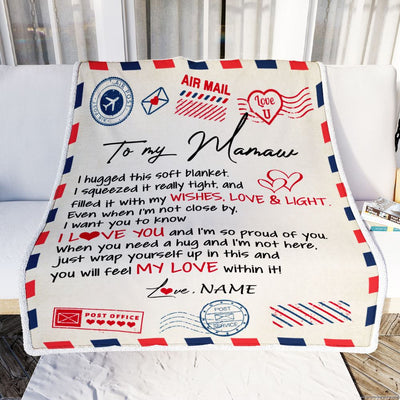 AIR MAIL
Love U
To my Mamaw
I hugged this soft blanket.
I squeezed it really tight, and
filled it with my WISHES, LOVE & LIGHT.
Even when I'm not close by.
I want you to know
I LOVE YOU and I'm so proud of you.
When you need a hug and I'm not here,
just wrap yourself up in this and
you will feel MY LOVE within it!
Love, NAME
POST OFFICE